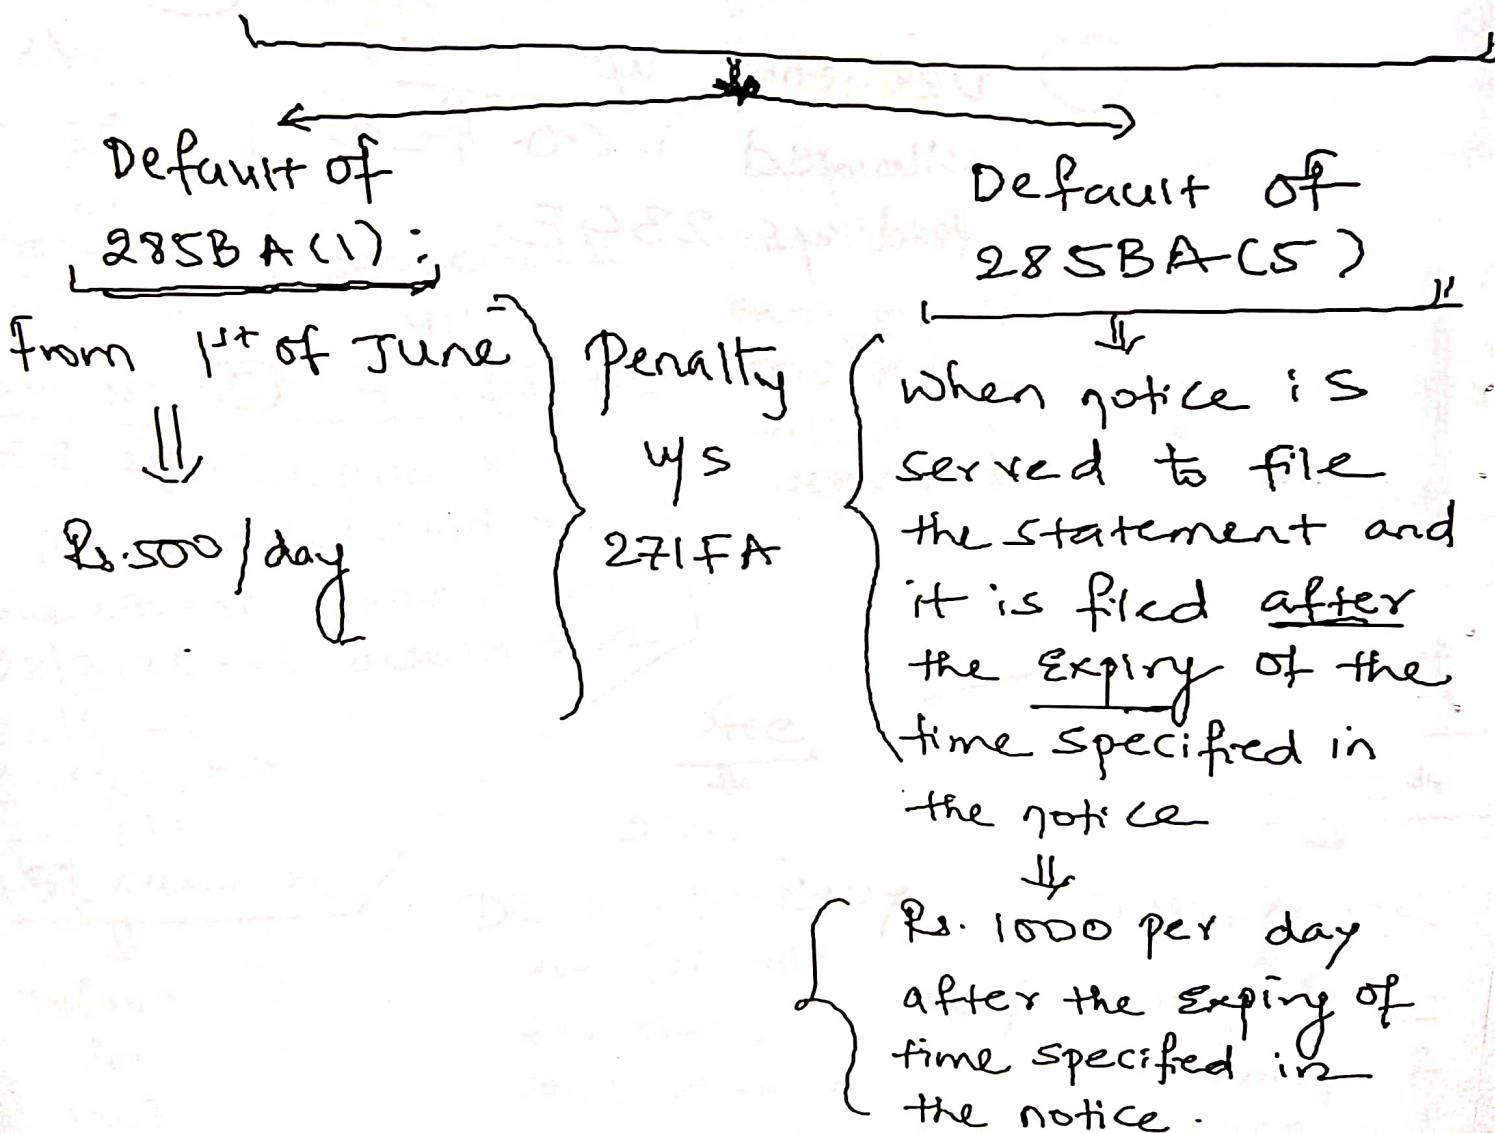 Default of
285BA(1):
From 1st of June
Rs.500/day
Penalty
u/s
271FA
Default of
285BA(5)
When notice is
served to file
the statement and
it is filed after
the Expiry of the
time specified in
the notice
Rs. 1000 per day
after the Expiry of
time specified in
the notice.